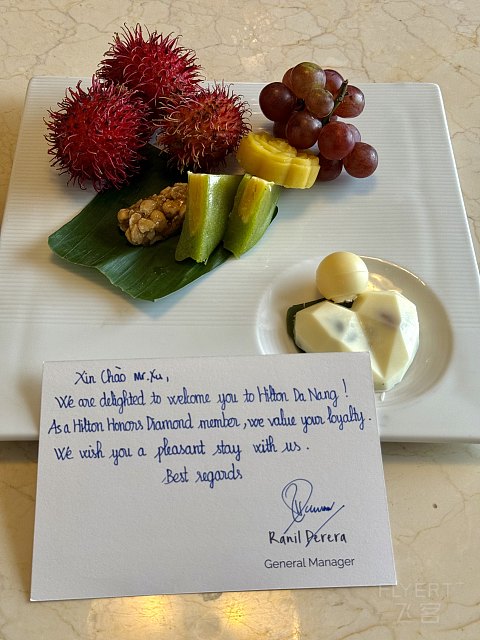 Xin Chào Mr. Xu,
We are delighted to welcome you to Hilton Da Nang!
As a Hilton Honors Diamond member, we value your loyalty.
We wish you a pleasant stay with us.
Best regards
Ranil Perera
General Manager
FLYERT
飞客